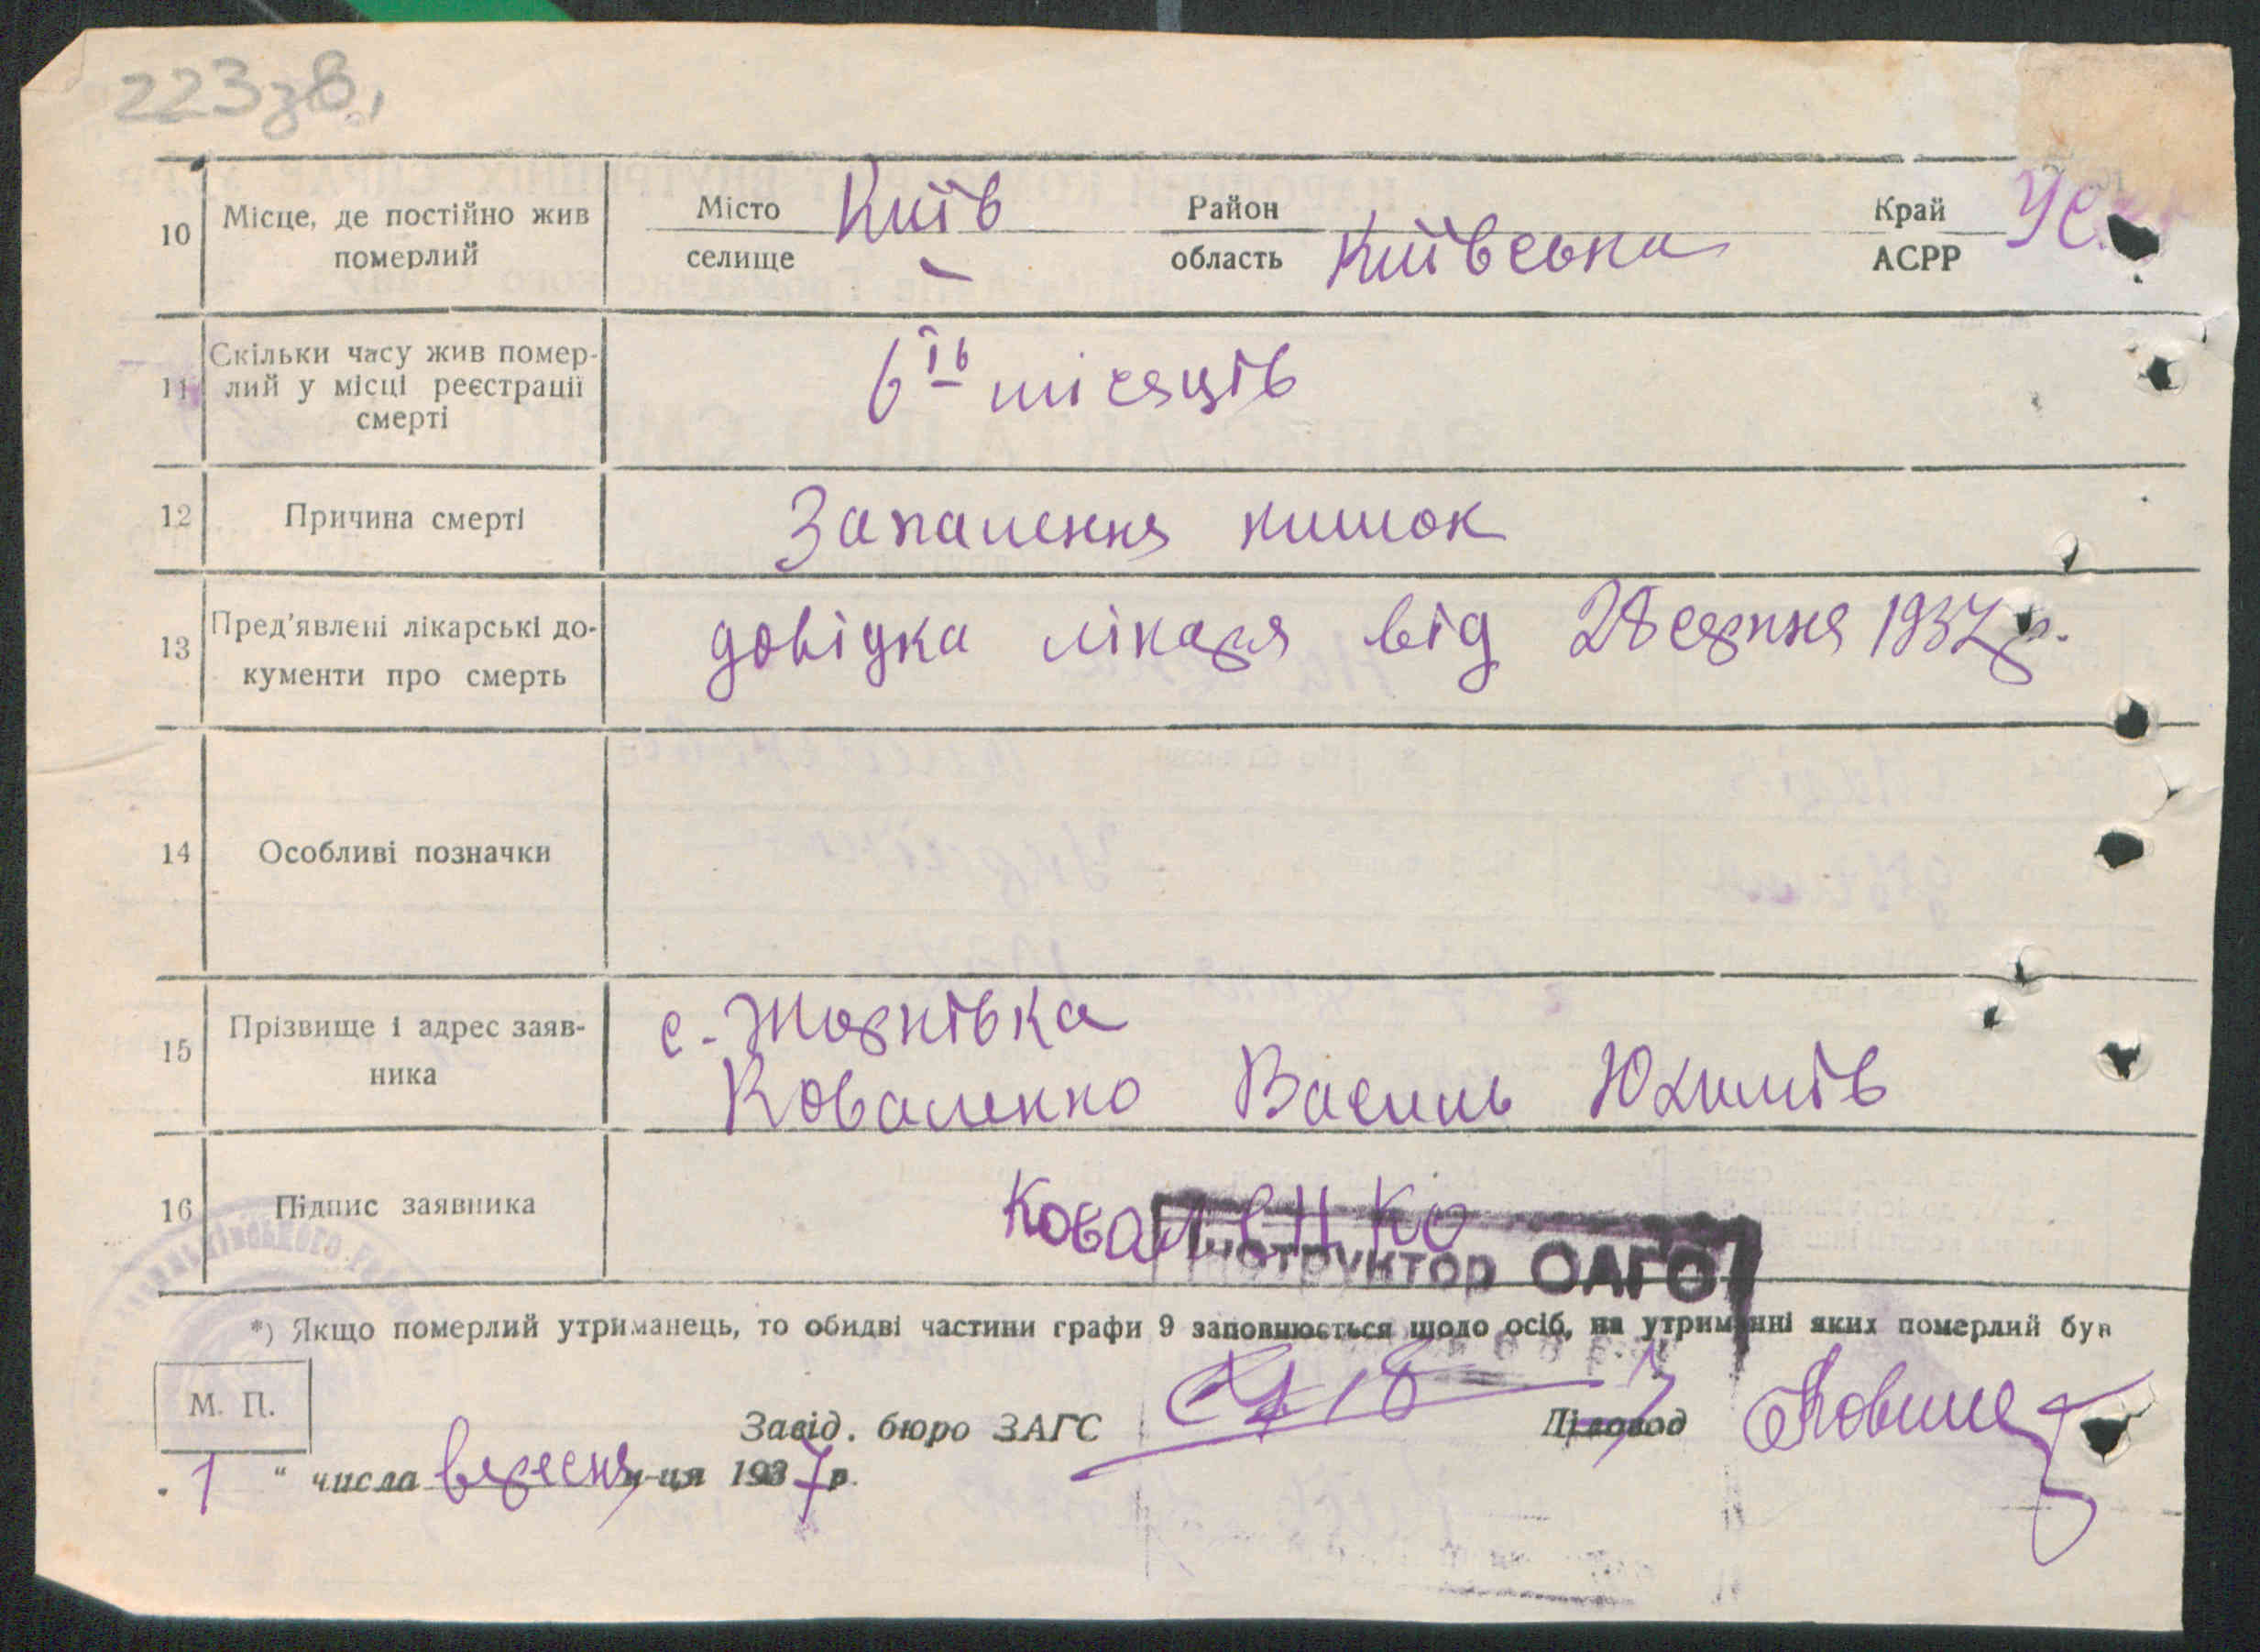 223 зв.
10 Місце, де постійно жив померлий Місто Київ Район Край УС
селище - область Київська АСРР
11 Скільки часу жив помер-
лий у місці реєстрації
смерті
6 ів місяців
12 Причина смерті Запалення кишок
13 Пред'явлені лікарські до-
кументи про смерть
довідка лікаря від 28 серпня 1937 р.
14 Особливі позначки
15 Прізвище і адрес заяв-
ника
с. Жорнівка
Коваленко Василь Юхимів
16 Підпис заявника Коваленко
Інструктор ОАГС
*) Якщо померлий утриманець, то обидві частини графи 9 заповнюється щодо осіб, на утриманні яких померлий був
М. П.
Завід. бюро ЗАГС Діловод
„ 1 " числа вересня м-ця 1937 р.